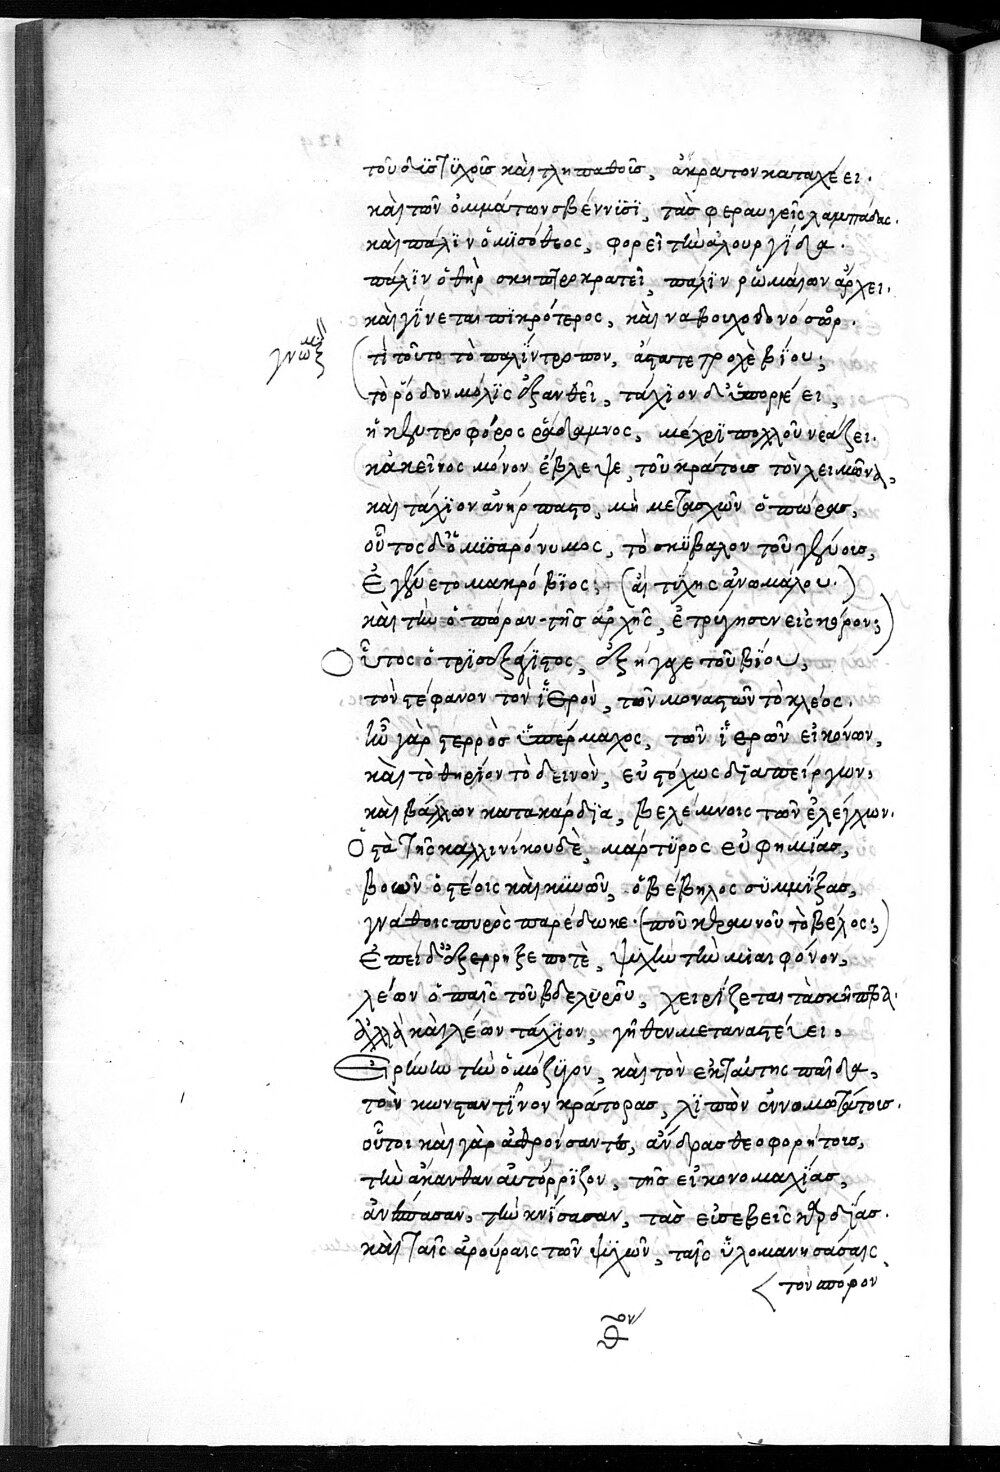 τοῦ δυστυχοῦς καὶ τλητπαθοῦς, ἄκρατον καταχέει.
καὶ τῶν ὀμμάτων σβέννυσι, τὰς φεραυγεῖς λαμπάδας.
καὶ πάλιν ὁ μισόθεος, φορεῖ τὴν ἁλουργίδα.
πάλιν ὁ θὴρ σκηπτροκρατεῖ, πάλιν ῥωμαίων ἄρχει.
καὶ γίνεται πικρότερος, καὶ ναβουχοδονόσωρ.
γνωμ
τί τοῦτο τὸ παλίντροπον, ἄστατε τροχὲ βίου;
τὸ ῥόδον μόλις ἐξανθεῖ, τάχιον δ' ὑπορρέει,
ἡ κεντροφόρος ῥάδαμνος, μέχρι πολλοῦ νεάζει.
κἀκεῖνος μόνον ἔβλεψε, τοῦ κράτους τὸν λειμῶνα,
καὶ τάχιον ἀνήρπαστο, μὴ μετασχὼν ὀπώρας,
οὗτος δ' ὁ μισαρόνυμος, τὸ σκύβαλον τοῦ γένους,
ἐγένετο μακρόβιος; (αἲ τύχης ἀνωμάλου.)
καὶ τὴν ὀπώραν τῆς ἀρχῆς, ἐτρύγησεν εἰς κόρον;)
Οὗτος ὁ τρισεξάγιστος, ἐξήγαγε τοῦ βίου,
τὸν στέφανον τὸν ἱερὸν, τῶν μοναστῶν τὸ κλέος.
ἦν γὰρ στερρὸς ὑπέρμαχος, τῶν ἱερῶν εἰκόνων,
καὶ τὸ θηρίον τὸ δεινὸν, εὐστόχως διαπείργων,
καὶ βάλλων κατακάρδια, βελέμνοις τῶν ἐλέγχων.
Ὀστᾶ τῆς καλλινίκου δὲ, μάρτυρος εὐφημίας,
βοῶν ὀστέοις καὶ κυνῶν, ὁ βέβηλος συμμίξας,
γνάθοις πυρὸς παρέδωκε. (ποῦ κεραυνοῦ τὸ βέλος;)
Ἐπεὶ δ' ἐξέρρηξε ποτὲ, ψυχὴν τὴν μιαιφόνον,
λέων ὁ παῖς τοῦ βδελυροῦ, χειρίζεται τὰ σκῆπτρα.
ἀλλὰ καὶ λέων τάχιον, γῆθεν μεταναστεύει.
Εἰρήνην τὴν ὁμόζυγον, καὶ τὸν ἐκ ταύτης παῖδα,
τὸν κωνσταντῖνον κράτορας, λιπὼν ἐννομωτάτους.
οὗτοι καὶ γὰρ ἀθροίσαντες, ἄνδρας θεοφορήτους,
τὴν ἄκανθαν αὐτόρριζον, τῆς εἰκονομαχίας,
ἀνέσπασαν, τὴν κνίσασαν, τὰς εὐσεβεῖς καρδίας.
καὶ ταῖς ἀρούραις τῶν ψυχῶν, ταῖς ὑλομανησάσαις
τὸν πόρον